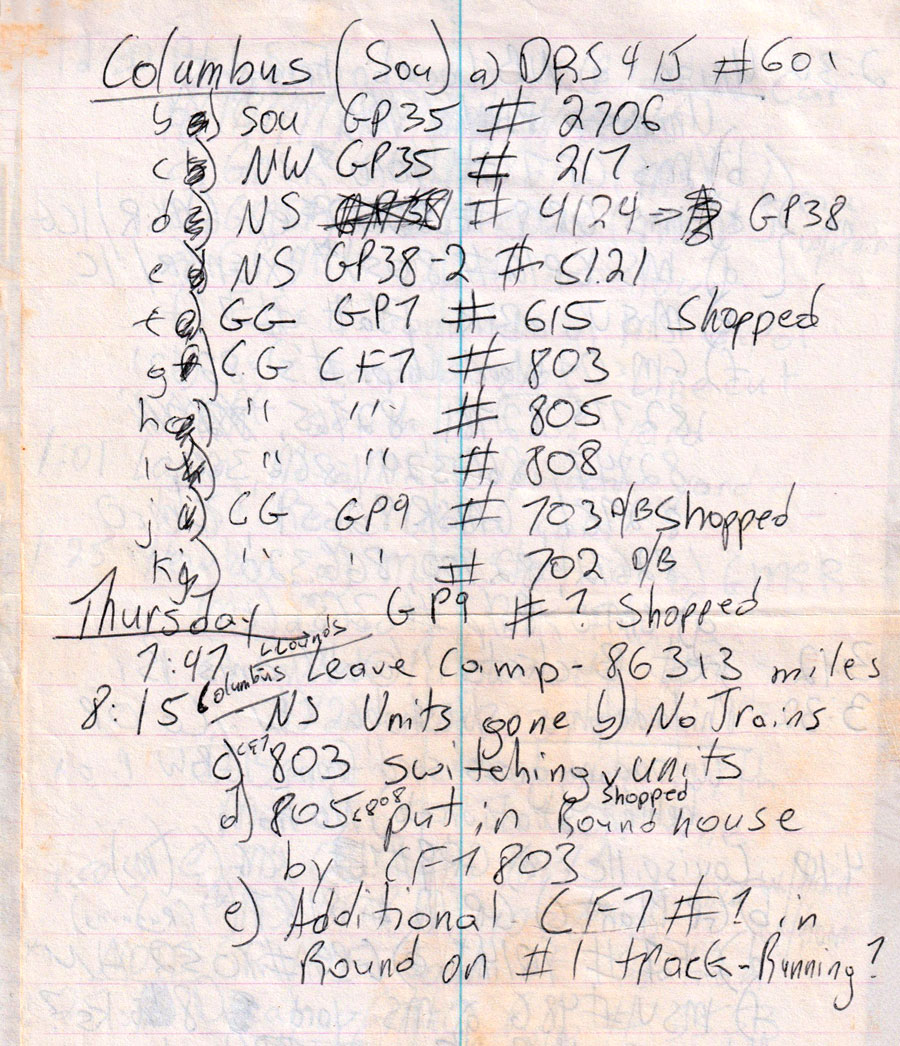 Columbus (Sou) a) DRS 4 15 #601
b) SOU GP35 # 2706
c) NW GP35 # 217
d) NS # 4124 → GP38
e) NS GP38-2 # 5121
f) GG GP7 # 615 Shopped
g) CG CF7 # 803
h) " " # 805
i) " " # 808
j) CG GP9 # 703 O/B Shopped
k) " " # 702 O/B
Thursday GP9 # ? Shopped
7:47 Leave Camp - 86313 miles
8:15 Columbus NS Units gone b) No Trains
c) CF7 803 switching units
shopped
d) 805 & 808 put in Roundhouse
by CF7 803
e) Additional CF7 #? in
Round on #1 track - Running?